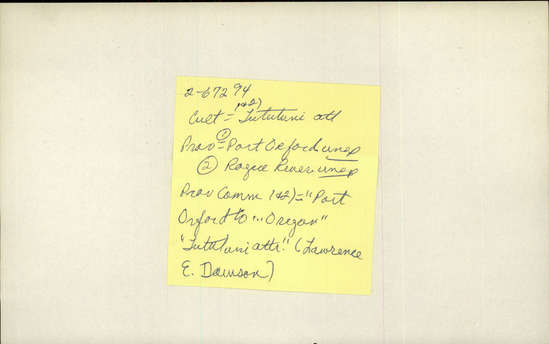 2-67294
Cult = (1+2) Tututuni att
Prov = ① Port Orford unsp
② Rogue River unsp
Prov Comm (1+2) = "Port
Orford to ... Oregon"
"Tututuni attr." (Lawrence
E. Dawson)